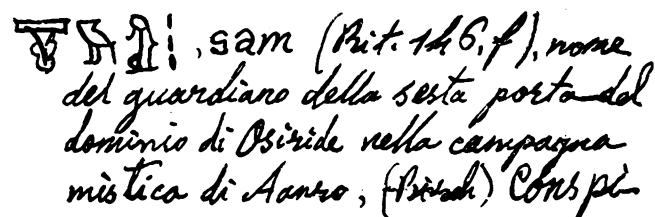 , sam (Rit. 146, f), nome
del guardiano della sesta porta del
dominio di Osiride nella campagna
mistica di Aanro, Conspi-